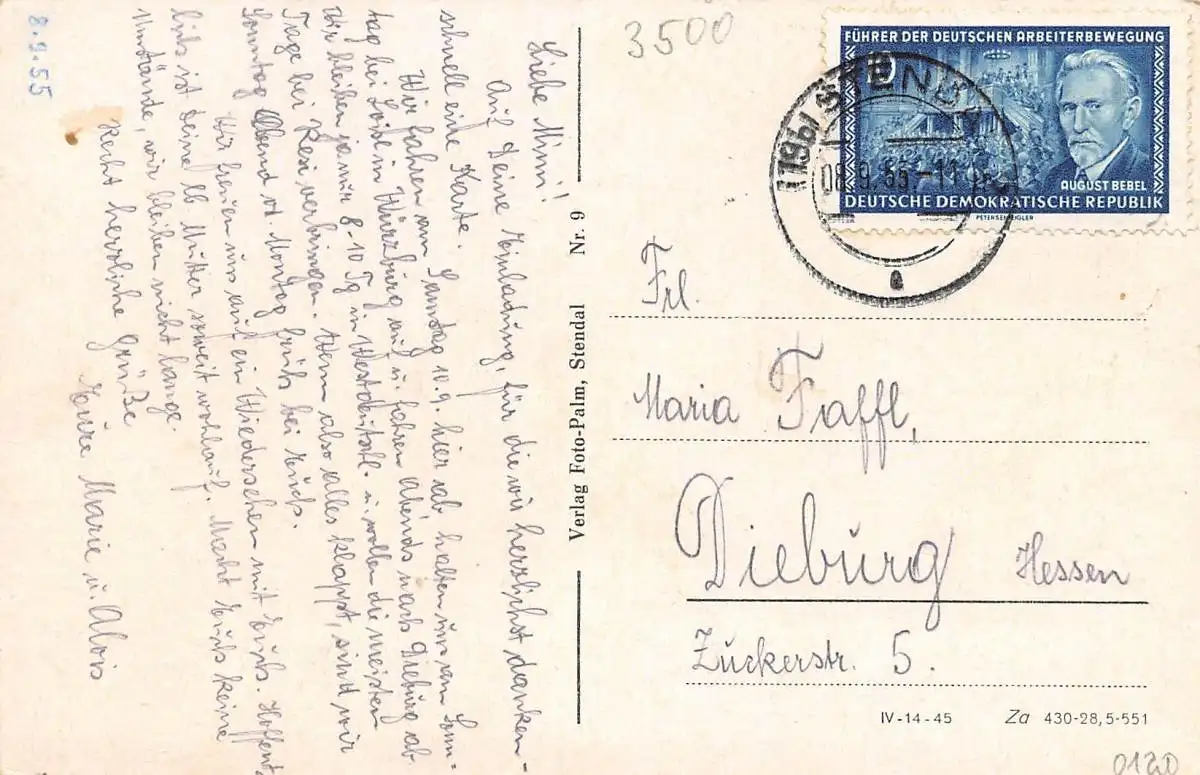 8.9.55
Liebe Mini!
Auf Deine Einladung, für die wir herzlichst danken -
schnell eine Karte.
Wir fahren am Samstag 10.9. hier ab halten uns am Sonn-
tag bei Loisl in Würzburg auf u. fahren Abends nach Dieburg ab
Wir bleiben ja nur 8-10 Tg in Westdeutschl. u. wollen die meisten
Tage bei Resi verbringen. Wenn also alles klappt, sind wir
Sonntag Abend od. Montag früh bei Euch.
Wir freuen uns auf ein Wiedersehen mit Euch. Hoffent-
lich ist Deine lb Mutter soweit wohlauf. Macht Euch keine
Umstände, wir bleiben nicht lange.
Recht herzliche Grüße
Eure Marie u. Alois
Verlag Foto-Palm, Stendal Nr. 9
3500
FÜHRER DER DEUTSCHEN ARBEITERBEWEGUNG
10
AUGUST BEBEL
DEUTSCHE DEMOKRATISCHE REPUBLIK
PETERSEN-EIGLER
(19b) STENDAL
08.9.55.-11
a
Frl.
Maria Faffl,
Dieburg Hessen
Zuckerstr. 5.
IV-14-45 Za 430-28,5-551
0120